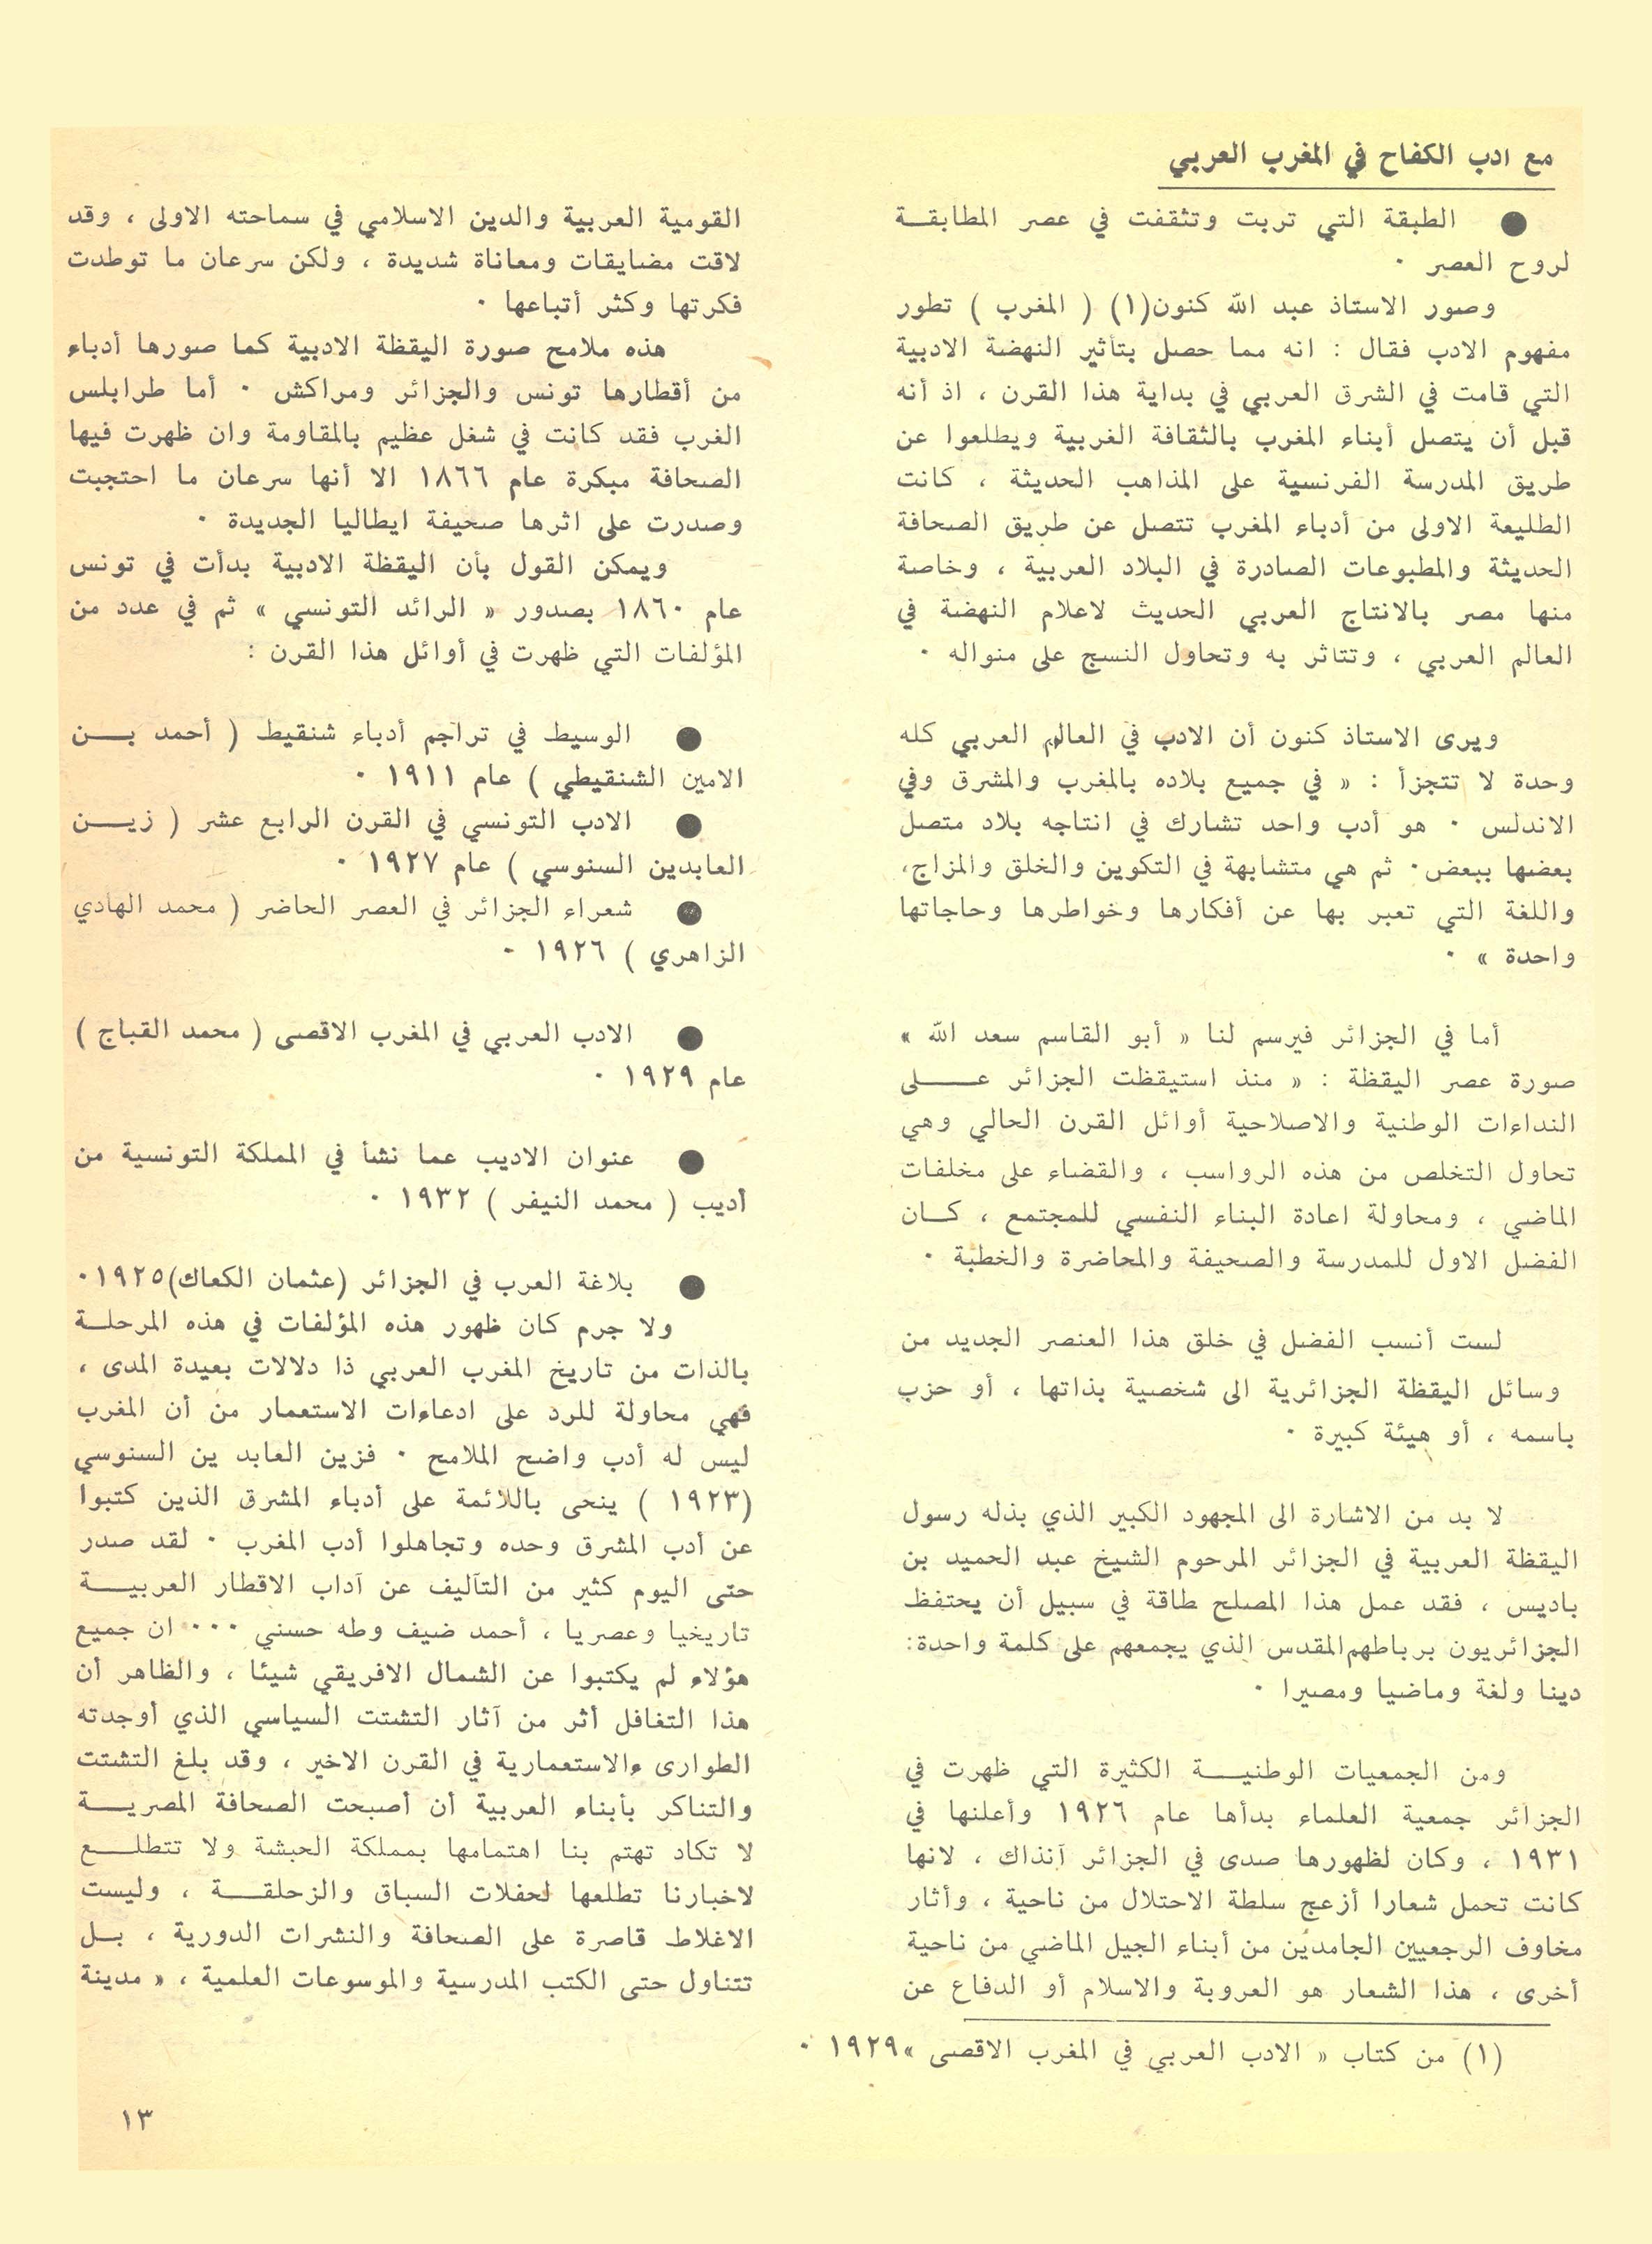 مع ادب الكفاح في المغرب العربي
● الطبقة التي تربت وتثقفت في عصر المطابقة
لروح العصر ٠
وصور الاستاذ عبد الله كنون(١) ( المغرب ) تطور
مفهوم الادب فقال : انه مما حصل بتأثير النهضة الادبية
التي قامت في الشرق العربي في بداية هذا القرن ، اذ أنه
قبل أن يتصل أبناء المغرب بالثقافة الغربية ويطلعوا عن
طريق المدرسة الفرنسية على المذاهب الحديثة ، كانت
الطليعة الاولى من أدباء المغرب تتصل عن طريق الصحافة
الحديثة والمطبوعات الصادرة في البلاد العربية ، وخاصة
منها مصر بالانتاج العربي الحديث لاعلام النهضة في
العالم العربي ، وتتاثر به وتحاول النسج على منواله ٠
ويرى الاستاذ كنون أن الادب في العالم العربي كله
وحدة لا تتجزأ : « في جميع بلاده بالمغرب والمشرق وفي
الاندلس ٠ هو أدب واحد تشارك في انتاجه بلاد متصل
بعضها ببعض ٠ ثم هي متشابهة في التكوين والخلق والمزاج،
واللغة التي تعبر بها عن أفكارها وخواطرها وحاجاتها
واحدة » ٠
أما في الجزائر فيرسم لنا « أبو القاسم سعد الله »
صورة عصر اليقظة : « منذ استيقظت الجزائر عـــلى
النداءات الوطنية والاصلاحية أوائل القرن الحالي وهي
تحاول التخلص من هذه الرواسب ، والقضاء على مخلفات
الماضي ، ومحاولة اعادة البناء النفسي للمجتمع ، كـان
الفضل الاول للمدرسة والصحيفة والمحاضرة والخطبة ٠
لست أنسب الفضل في خلق هذا العنصر الجديد من
وسائل اليقظة الجزائرية الى شخصية بذاتها ، أو حزب
باسمه ، أو هيئة كبيرة ٠
لا بد من الاشارة الى المجهود الكبير الذي بذله رسول
اليقظة العربية في الجزائر المرحوم الشيخ عبد الحميد بن
باديس ، فقد عمل هذا المصلح طاقة في سبيل أن يحتفظ
الجزائريون برباطهم المقدس الذي يجمعهم على كلمة واحدة:
دينا ولغة وماضيا ومصيرا ٠
ومن الجمعيات الوطنيـــة الكثيرة التي ظهرت في
الجزائر جمعية العلماء بدأها عام ١٩٢٦ وأعلنها في
١٩٣١ ، وكان لظهورها صدى في الجزائر آنذاك ، لانها
كانت تحمل شعارا أزعج سلطة الاحتلال من ناحية ، وأثار
مخاوف الرجعيين الجامدين من أبناء الجيل الماضي من ناحية
أخرى ، هذا الشعار هو العروبة والاسلام أو الدفاع عن
(١) من كتاب « الادب العربي في المغرب الاقصى »١٩٢٩ ٠
القومية العربية والدين الاسلامي في سماحته الاولى ، وقد
لاقت مضايقات ومعاناة شديدة ، ولكن سرعان ما توطدت
فكرتها وكثر أتباعها ٠
هذه ملامح صورة اليقظة الادبية كما صورها أدباء
من أقطارها تونس والجزائر ومراكش ٠ أما طرابلس
الغرب فقد كانت في شغل عظيم بالمقاومة وان ظهرت فيها
الصحافة مبكرة عام ١٨٦٦ الا أنها سرعان ما احتجبت
وصدرت على اثرها صحيفة ايطاليا الجديدة ٠
ويمكن القول بأن اليقظة الادبية بدأت في تونس
عام ١٨٦٠ بصدور « الرائد التونسي » ثم في عدد من
المؤلفات التي ظهرت في أوائل هذا القرن :
● الوسيط في تراجم أدباء شنقيط ( أحمد بـــن
الامين الشنقيطي ) عام ١٩١١ ٠
● الادب التونسي في القرن الرابع عشر ( زيـــن
العابدين السنوسي ) عام ١٩٢٧ ٠
● شعراء الجزائر في العصر الحاضر ( محمد الهادي
الزاهري ) ١٩٢٦ ٠
● الادب العربي في المغرب الاقصى ( محمد القباج )
عام ١٩٢٩ ٠
● عنوان الاديب عما نشأ في المملكة التونسية من
أديب ( محمد النيفر ) ١٩٣٢ ٠
● بلاغة العرب في الجزائر (عثمان الكعاك)١٩٢٥ ٠
ولا جرم كان ظهور هذه المؤلفات في هذه المرحلـة
بالذات من تاريخ المغرب العربي ذا دلالات بعيدة المدى ،
فهي محاولة للرد على ادعاءات الاستعمار من أن المغرب
ليس له أدب واضح الملامح ٠ فزين العابد ين السنوسي
(١٩٢٣ ) ينحى باللائمة على أدباء المشرق الذين كتبوا
عن أدب المشرق وحده وتجاهلوا أدب المغرب ٠ لقد صدر
حتى اليوم كثير من التآليف عن آداب الاقطار العربيـــة
تاريخيا وعصريا ، أحمد ضيف وطه حسني ٠٠٠ ان جميع
هؤلاء لم يكتبوا عن الشمال الافريقي شيئا ، والظاهر أن
هذا التغافل أثر من آثار التشتت السياسي الذي أوجدته
الطوارى ءالاستعمارية في القرن الاخير ، وقد بلغ التشتت
والتناكر بأبناء العربية أن أصبحت الصحافة المصريـــة
لا تكاد تهتم بنا اهتمامها بمملكة الحبشة ولا تتطلـــع
لاخبارنا تطلعها لحفلات السباق والزحلقـــة ، وليست
الاغلاط قاصرة على الصحافة والنشرات الدورية ، بـل
تتناول حتى الكتب المدرسية والموسوعات العلمية ، « مدينة
١٣